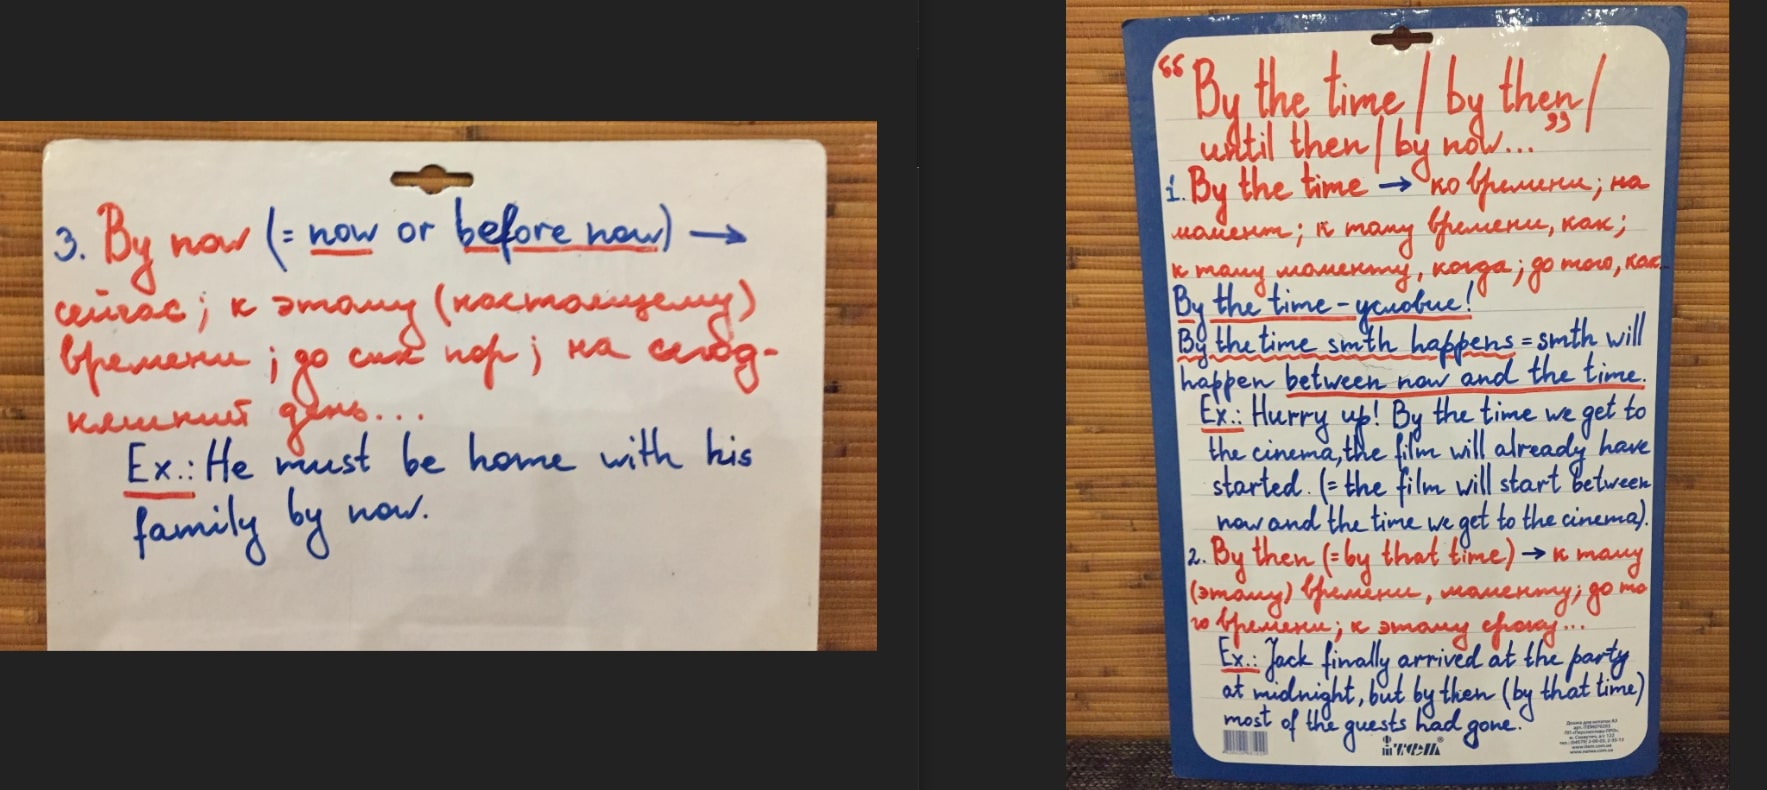 3. By now (= now or before now) →
сейчас; к этому (настоящему)
времени; до сих пор; на сегод-
няшний день...
Ex.: He must be home with his
family by now.
“By the time / by then /
until then / by now...”
1. By the time → ко времени; на
момент; к тому времени, как;
к тому моменту, когда; до того, как
By the time - условие!
By the time smth happens = smth will
happen between now and the time.
Ex.: Hurry up! By the time we get to
the cinema, the film will already have
started. (= the film will start between
now and the time we get to the cinema).
2. By then (= by that time) → к тому
(этому) времени, моменту; до то
го времени; к этому сроку...
Ex.: Jack finally arrived at the party
at midnight, but by then (by that time)
most of the guests had gone.